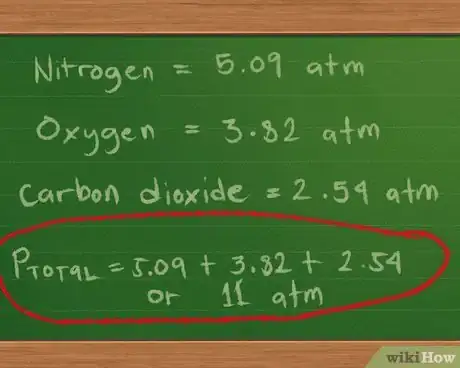 Nitrogen = 5.09 atm
Oxygen = 3.82 atm
Carbon dioxide = 2.54 atm
PTOTAL = 5.09 + 3.82 + 2.54
or 11 atm
wikiHow